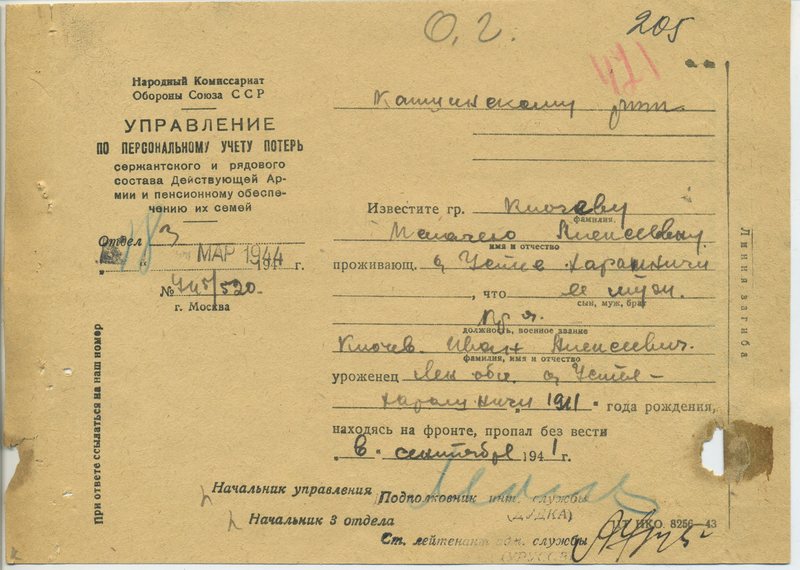 О. г.
205
471
Народный Комиссариат
Обороны Союза ССР
УПРАВЛЕНИЕ
ПО ПЕРСОНАЛЬНОМУ УЧЕТУ ПОТЕРЬ
сержантского и рядового
состава Действующей Ар-
мии и пенсионному обеспе-
чению их семей
Отдел 3
18 МАР 1944 г.
194
№ 745/520
г. Москва
При ответе ссылаться на наш номер
Известите гр. Ключеву
фамилия,
Алексеевну
имя и отчество
проживающ. д Устье
, что ее муж.
сын, муж, брат
должность, военное звание
Ключев Иван Алексеевич.
фамилия, имя и отчество
уроженец Лен обл. д Устье-
1911 года рождения,
находясь на фронте, пропал без вести
в сентябре 1941 г.
Начальник управления
Подполковник инт. службы
(ДУДКА)
Начальник 3 отдела
ЦТ НКО. 8256—43
Ст. лейтенант адм. службы
Линия загиба